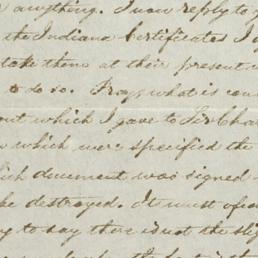 anything. I can reply to y
the Indiana Certificates I d
take them at their present
to do so. Pray what is con
out which I gave to Sir Cha
which were specified the
ich document was signed
be destroyed. Its most
ng to say there is not the